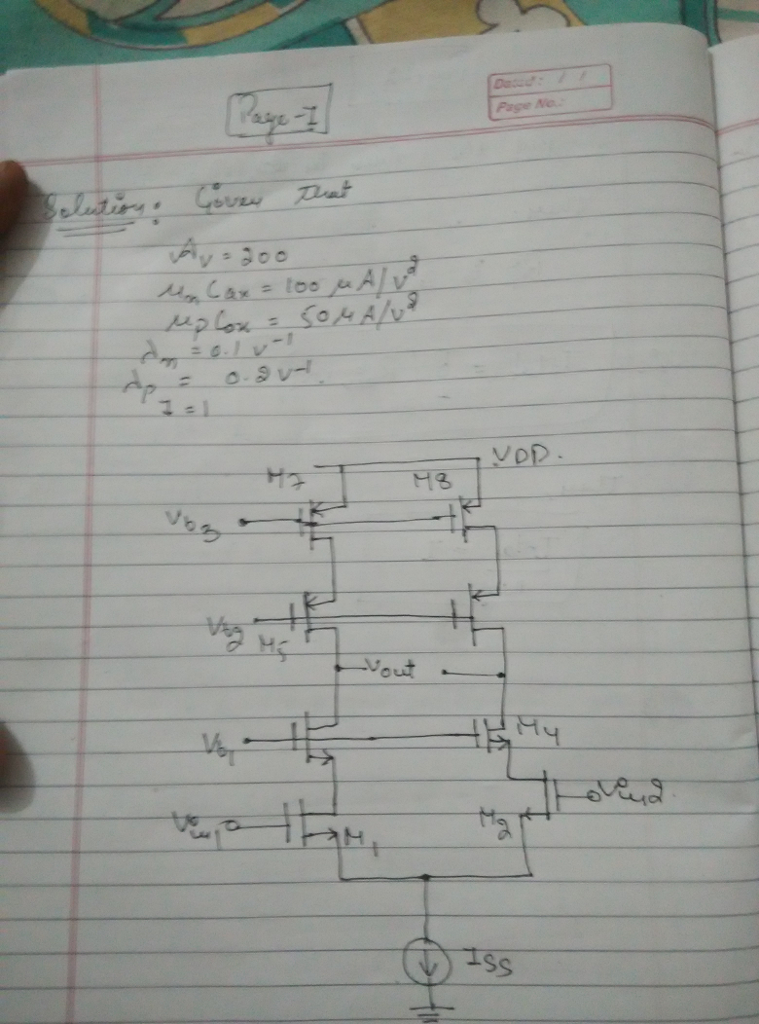 Page-I
Dated: / /
Page No.:
Solution: Given That
Av = 200
μn Cox = 100 μA/v²
μp Cox = 50 μA/v²
λn = 0.1 v⁻¹
λp = 0.2 v⁻¹.
I = 1
VDD.
M7 M8
Vb3
Vb2 M5
Vout
Vb1 M4
Vin2
Vin1 M1 M2
ISS